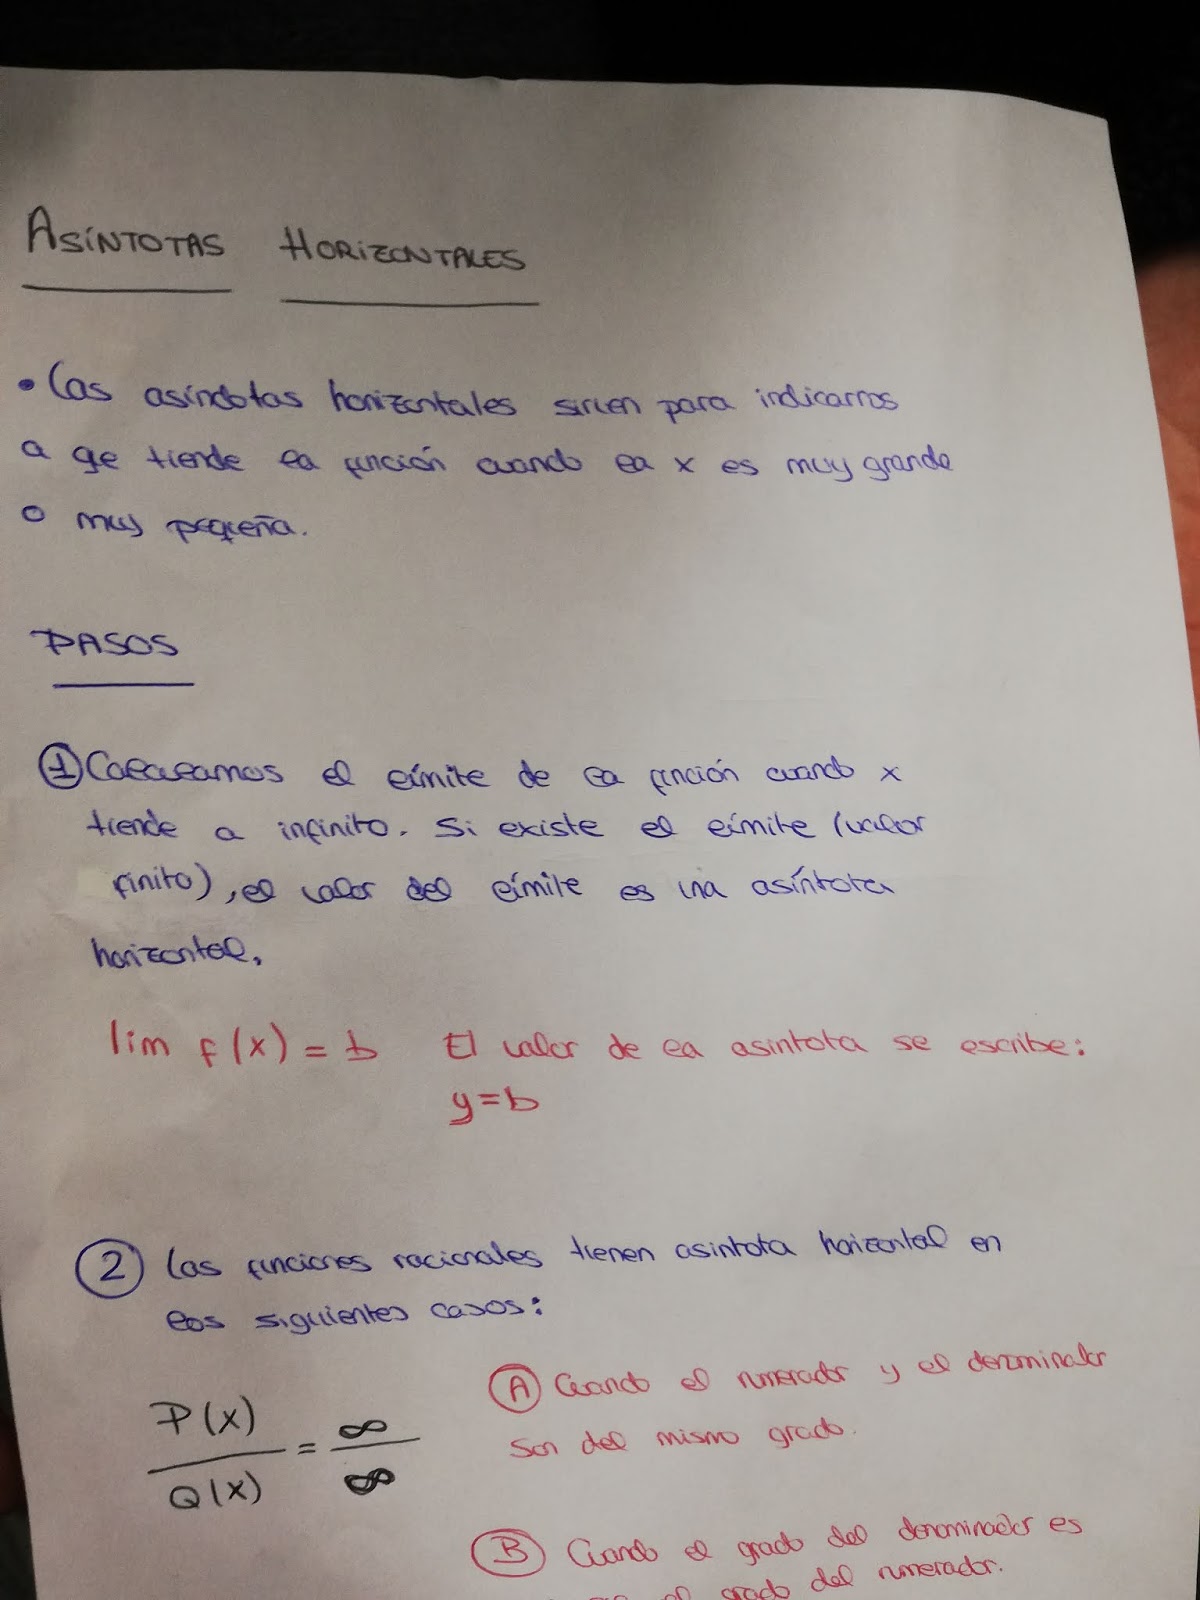 ASÍNTOTAS HORIZONTALES
• Las asíndotas horizontales sirven para indicarnos
a qe tiende la función cuando la x es muy grande
o muy pequeña.
PASOS
① Calculamos el límite de la función cuando x
tiende a infinito. Si existe el límite (valor
finito), el valor del límite es una asíntota
horizontal.
lim f(x) = b El valor de la asintota se escribe:
y=b
② Las funciones racionales tienen asintota horizontal en
los siguientes casos:
Ⓐ Cuando el numerador y el denominador
son del mismo grado.
P(x) / Q(x) = ∞ / ∞
Ⓑ Cuando el grado del denominador es
el grado del numerador.